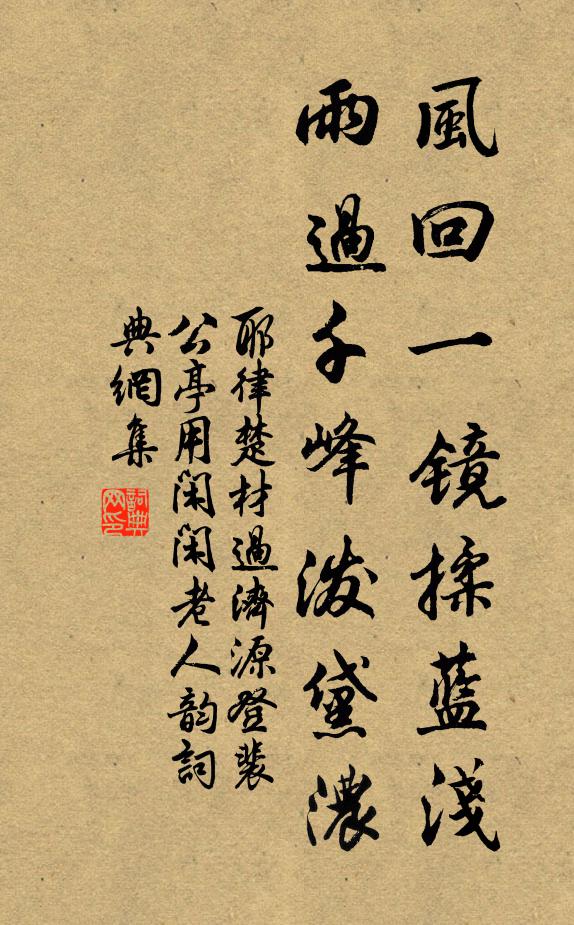 風回一鏡揉藍淺
雨過千峰潑黛濃
耶律楚材過濟源登裴
公亭用閑閑老人韵詞
典網集
詞典
网印